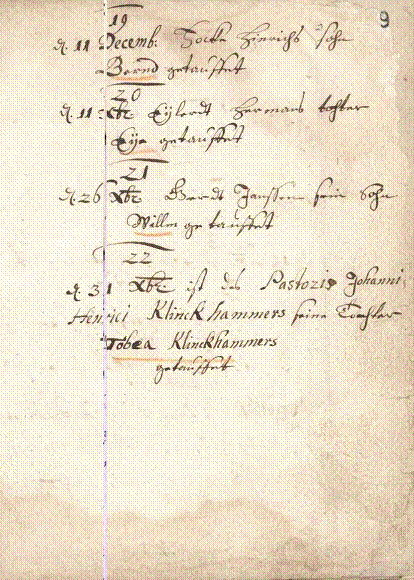 9
19
d. 11 Decemb. Focke Hinrichs sohn
Bernd getauffet
20
d. 11 Xbr. Eylerdt Hermans tochter
Eye getauffet
21
d. 26 Xbr. Gerdt Janssen sein Sohn
Willm getauffet
22
d. 31 Xbr. ist des Pastoris Johanni
Henrici Klinckhammers seine Tochter
Tobea Klinckhammers
getauffet